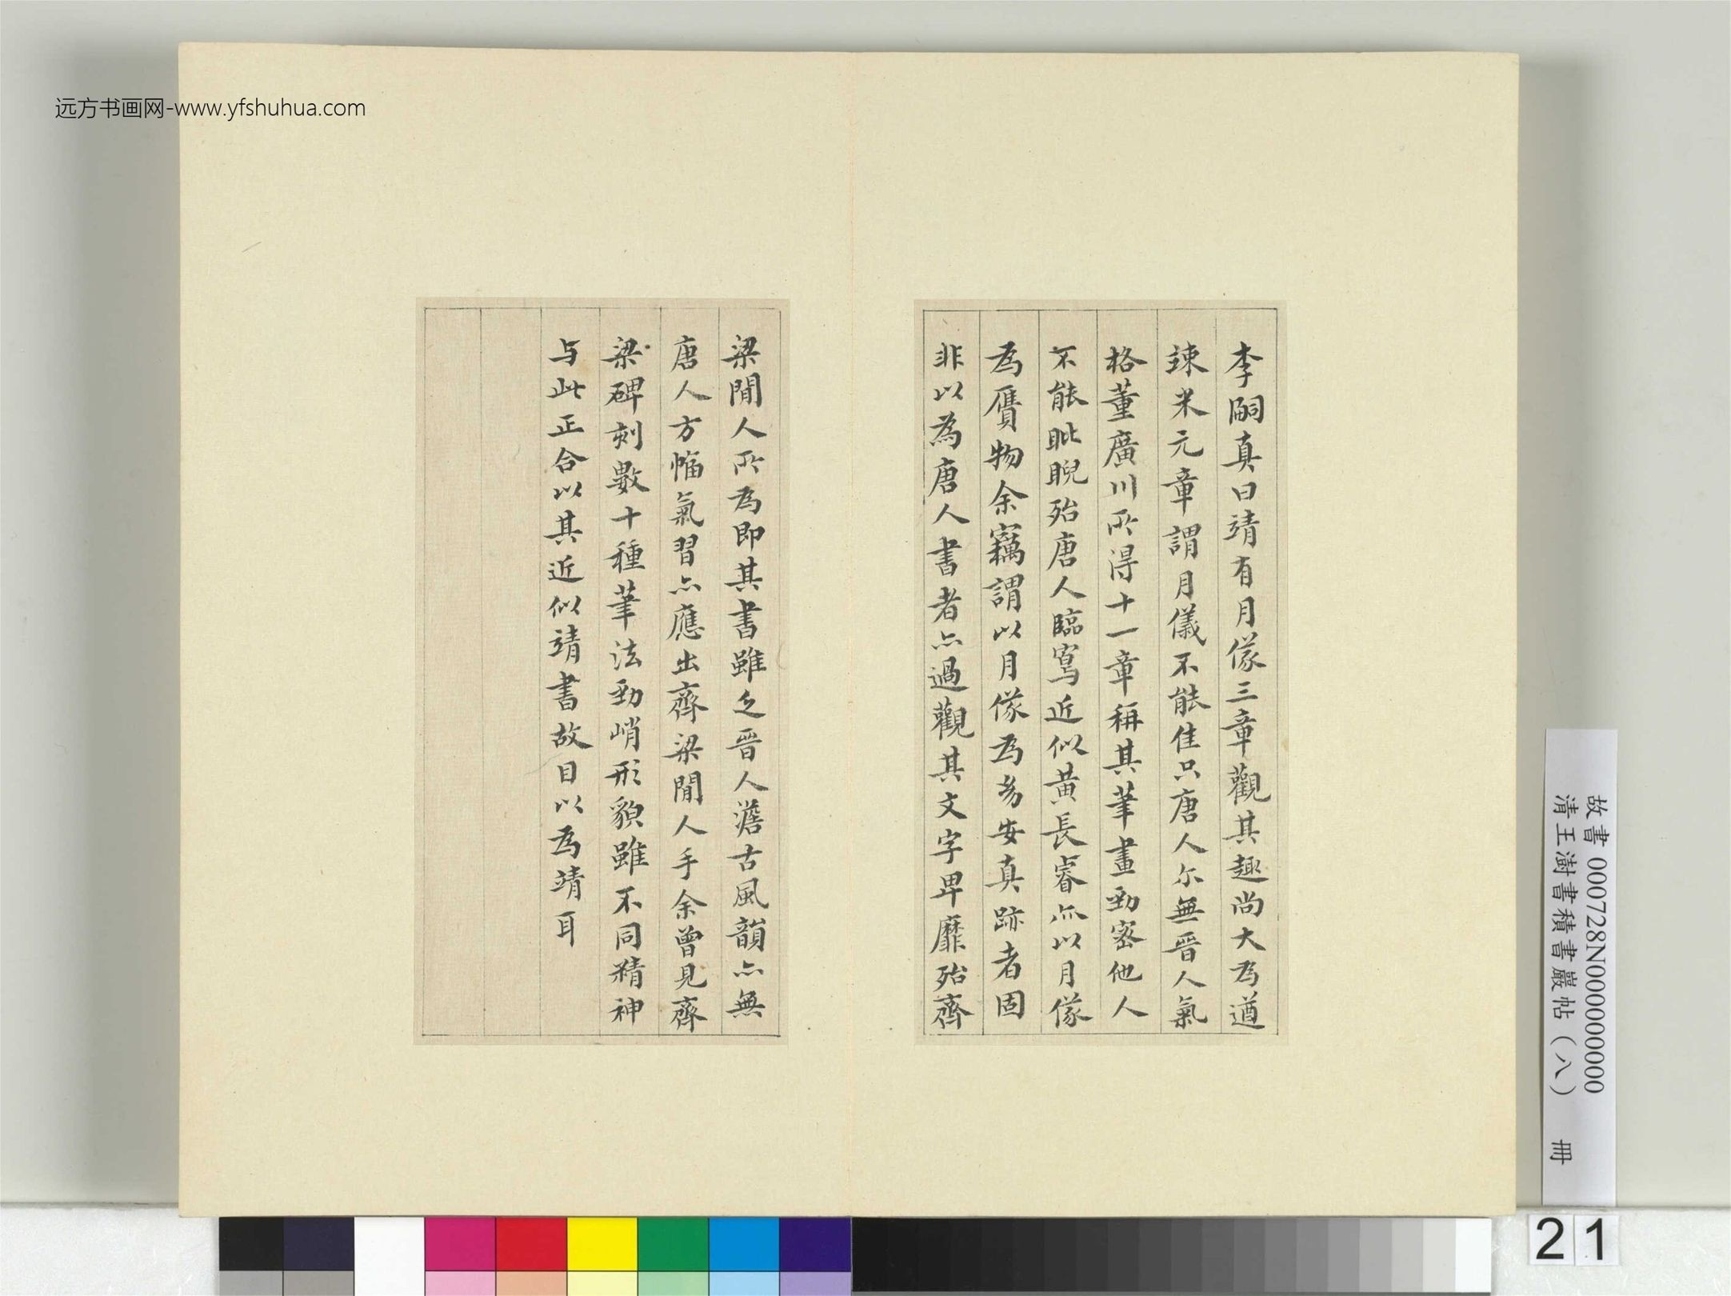 远方书画网-www.yfshuhua.com
李嗣真曰靖有月儀三章觀其趣尚大為遒
竦米元章謂月儀不能佳只唐人尓無晉人氣
格董廣川所得十一章稱其筆畫勁密他人
不能睥睨殆唐人臨寫近似黃長睿亦以月儀
為贋物余竊謂以月儀為易安真跡者固
非以為唐人書者亦過觀其文字卑靡殆齊
梁閒人所為即其書雖乏晉人澹古風韻亦無
唐人方幅氣習亦應出齊梁閒人手余曾見齊
梁碑刻數十種筆法勁峭形貌雖不同精神
与此正合以其近似靖書故目以為靖耳
故書 000728N000000000
清王澍書積書巖帖（八） 冊
21